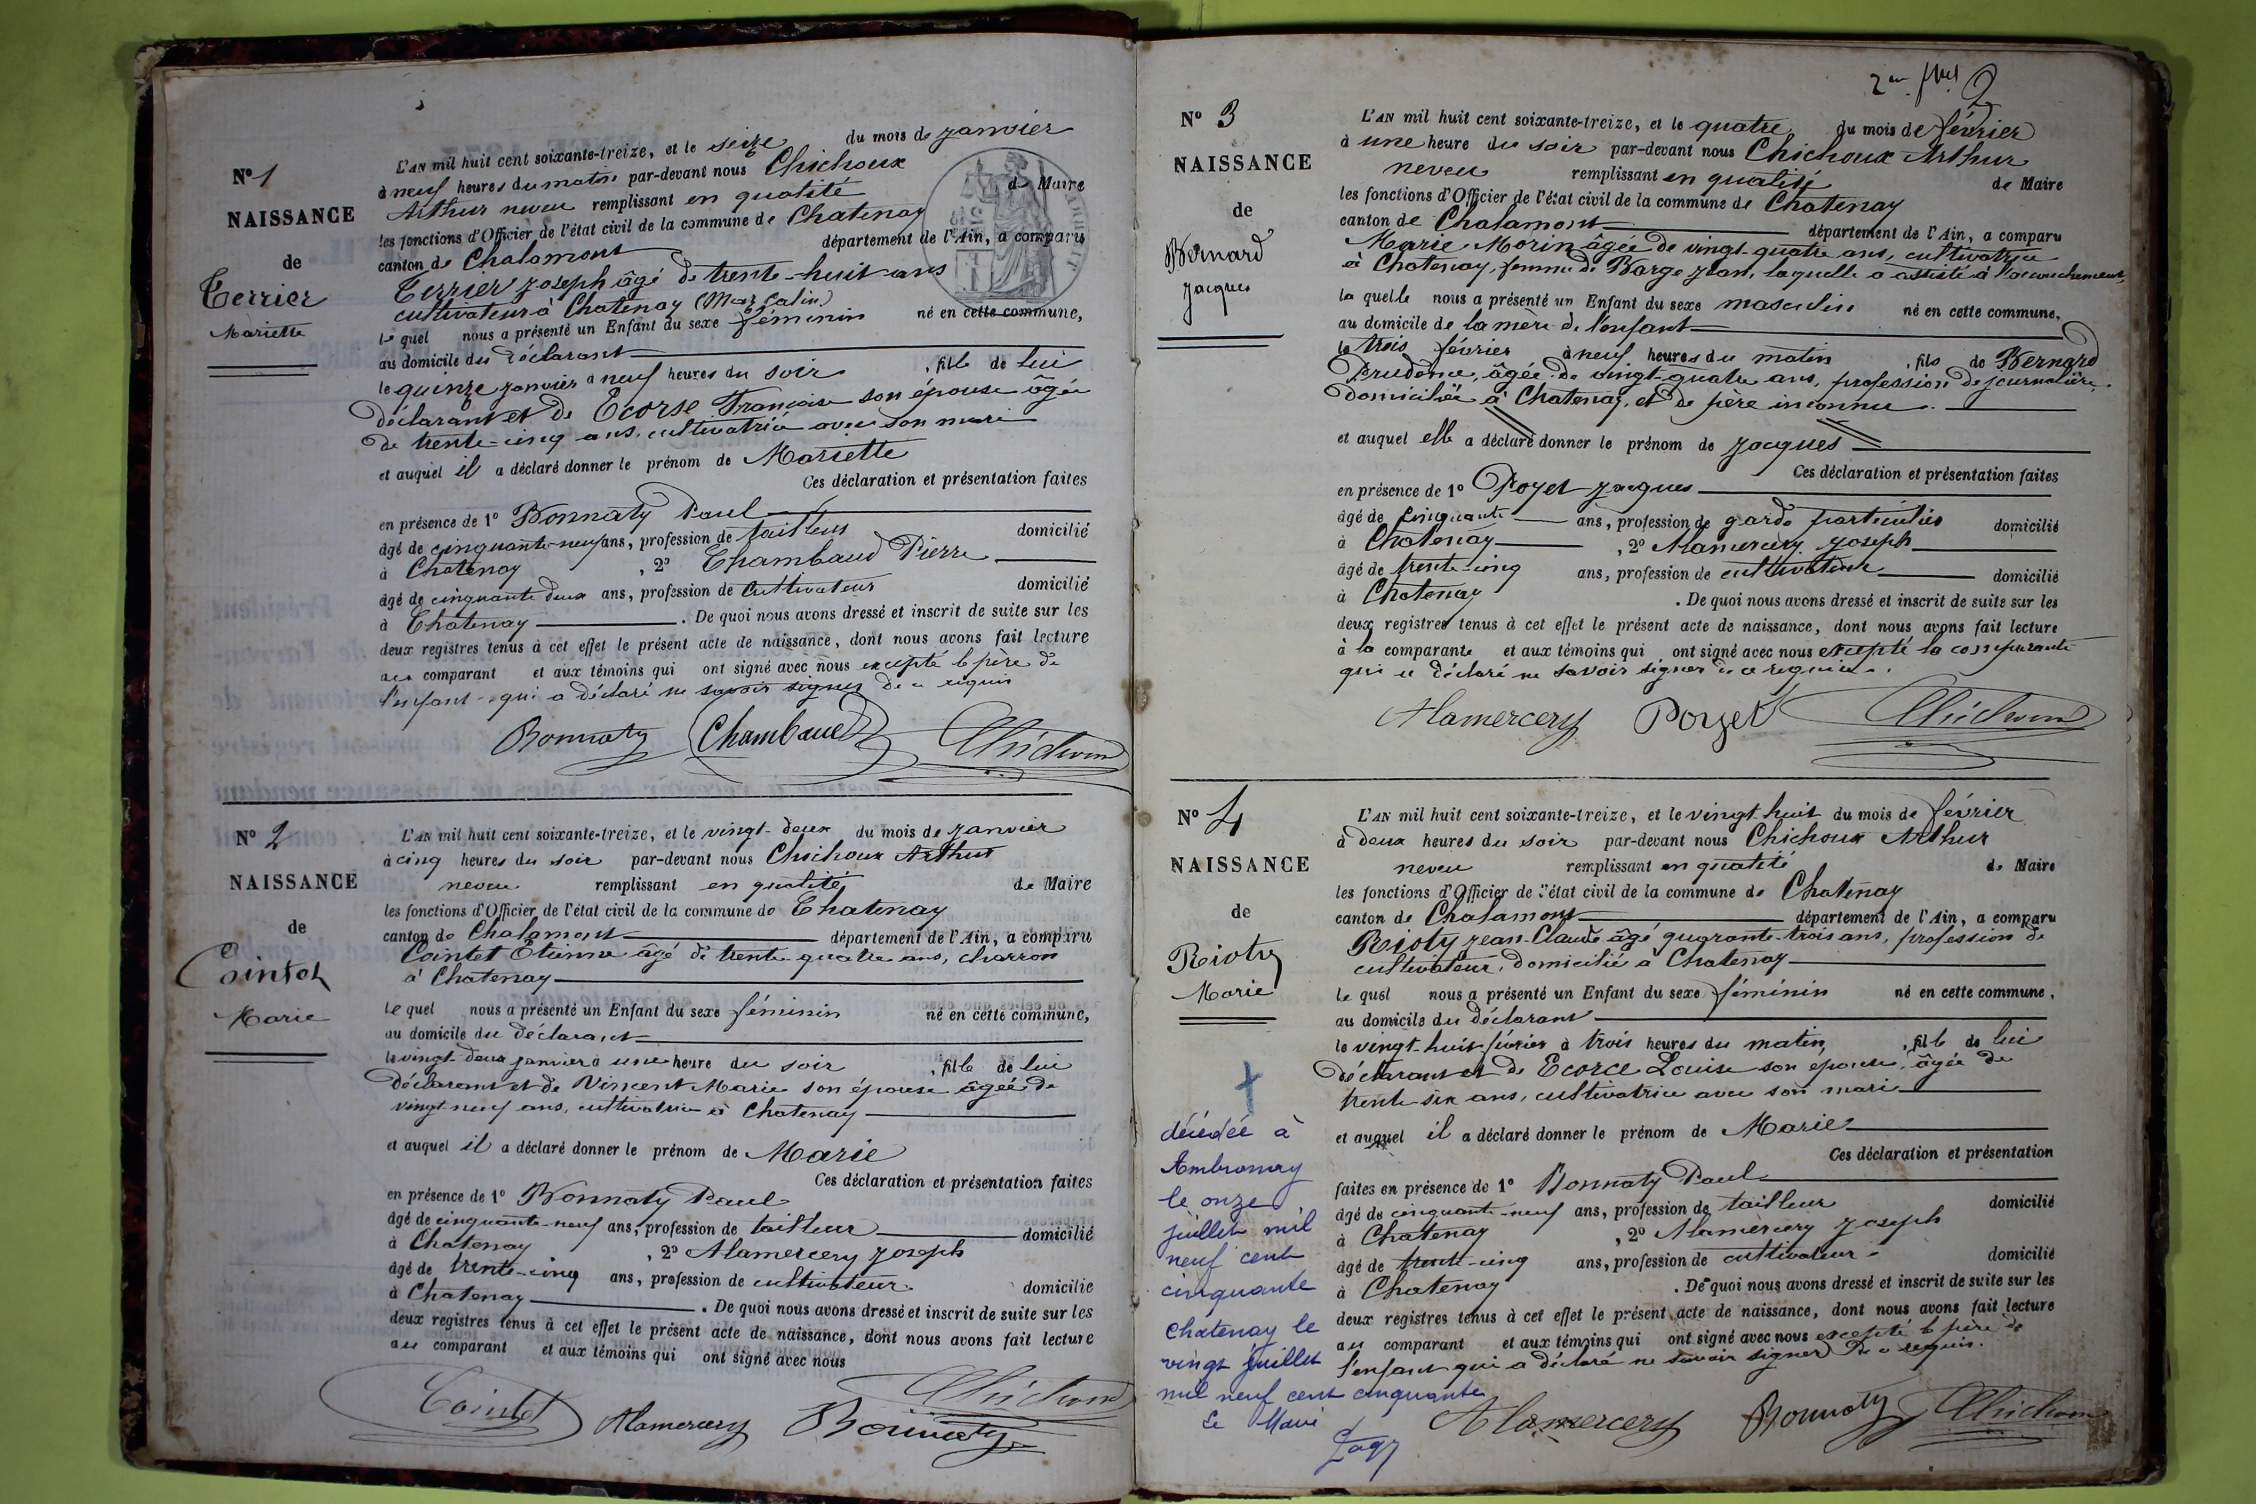 N° 1
NAISSANCE
de
Terrier
Mariette
L'AN mil huit cent soixante-treize, et le seize du mois de janvier
à neuf heures du matin par-devant nous Chichoux
Arthur neveu remplissant en qualité de Maire
les fonctions d'Officier de l'état civil de la commune de Chatenay
canton de Chalamont département de l'Ain, a comparu
Terrier joseph âgé de trente-huit ans
cultivateur à Chatenay
le quel nous a présenté un Enfant du sexe féminin né en cette commune,
au domicile du déclarant
le quinze janvier à neuf heures du soir, fille de lui
déclarant et de Ecorse Françoise son épouse âgée
de trente-cinq ans, cultivatrice avec son mari
et auquel il a déclaré donner le prénom de Mariette
Ces déclaration et présentation faites
en présence de 1° Bonnaty Paul
âgé de cinquante-neuf ans, profession de tailleur domicilié
à Chatenay, 2° Chambaud Pierre
âgé de cinquante deux ans, profession de cultivateur domicilié
à Chatenay. De quoi nous avons dressé et inscrit de suite sur les
deux registres tenus à cet effet le présent acte de naissance, dont nous avons fait lecture
au comparant et aux témoins qui ont signé avec nous excepté le père de
l'enfant qui a déclaré ne savoir signer de ce requis
Bonnaty Chambaud Chichoux
N° 2
NAISSANCE
de
Cointet
Marie
L'AN mil huit cent soixante-treize, et le vingt-deux du mois de janvier
à cinq heures du soir par-devant nous Chichoux Arthur
neveu remplissant en qualité de Maire
les fonctions d'Officier de l'état civil de la commune de Chatenay
canton de Chalamont département de l'Ain, a comparu
Cointet Etienne âgé de trente-quatre ans, charron
à Chatenay
le quel nous a présenté un Enfant du sexe féminin né en cette commune,
au domicile du déclarant
le vingt-deux janvier à une heure du soir, fille de lui
déclarant et de Vincent Marie son épouse âgée de
vingt-neuf ans, cultivatrice à Chatenay
et auquel il a déclaré donner le prénom de Marie
Ces déclaration et présentation faites
en présence de 1° Bonnaty Paul
âgé de cinquante-neuf ans, profession de tailleur domicilié
à Chatenay, 2° Alamercery joseph
âgé de trente-cinq ans, profession de cultivateur domicilié
à Chatenay. De quoi nous avons dressé et inscrit de suite sur les
deux registres tenus à cet effet le présent acte de naissance, dont nous avons fait lecture
au comparant et aux témoins qui ont signé avec nous
Cointet Alamercery Bonnaty Chichoux
2
N° 3
NAISSANCE
de
Bernard
jacques
L'AN mil huit cent soixante-treize, et le quatre du mois de février
à une heure du soir par-devant nous Chichoux Arthur
neveu remplissant en qualité de Maire
les fonctions d'Officier de l'état civil de la commune de Chatenay
canton de Chalamont département de l'Ain, a comparu
Marie Morin âgée de vingt-quatre ans, cultivatrice
à Chatenay, femme de Barge jean, laquelle a assisté à l'accouchement,
la quelle nous a présenté un Enfant du sexe masculin né en cette commune,
au domicile de la mère de l'enfant
le trois février à neuf heures du matin, fils de Bernard
Prudence, âgée de vingt-quatre ans, profession de journalière
domiciliée à Chatenay, et de père inconnu.
et auquel elle a déclaré donner le prénom de jacques
Ces déclaration et présentation faites
en présence de 1° Poyet jacques
âgé de cinquante ans, profession de garde particulier domicilié
à Chatenay, 2° Alamercery joseph
âgé de trente-cinq ans, profession de cultivateur domicilié
à Chatenay. De quoi nous avons dressé et inscrit de suite sur les
deux registres tenus à cet effet le présent acte de naissance, dont nous avons fait lecture
à la comparante et aux témoins qui ont signé avec nous excepté la comparante
qui a déclaré ne savoir signer de ce requise.
Alamercery Poyet Chichoux
N° 4
NAISSANCE
de
Rioty
Marie
décédée à
Ambronay
le onze
juillet mil
neuf cent
cinquante
Chatenay le
vingt juillet
mil neuf cent cinquante
Le Maire
L'AN mil huit cent soixante-treize, et le vingt-huit du mois de février
à deux heures du soir par-devant nous Chichoux Arthur
neveu remplissant en qualité de Maire
les fonctions d'Officier de l'état civil de la commune de Chatenay
canton de Chalamont département de l'Ain, a comparu
Rioty jean-Claude âgé quarante-trois ans, profession de
cultivateur, domicilié à Chatenay
le quel nous a présenté un Enfant du sexe féminin né en cette commune,
au domicile du déclarant
le vingt-huit février à trois heures du matin, fille de lui
déclarant et de Ecorce Louise son épouse, âgée de
trente-six ans, cultivatrice avec son mari
et auquel il a déclaré donner le prénom de Marie
Ces déclaration et présentation
faites en présence de 1° Bonnaty Paul
âgé de cinquante-neuf ans, profession de tailleur domicilié
à Chatenay, 2° Alamercery joseph
âgé de trente-cinq ans, profession de cultivateur domicilié
à Chatenay. De quoi nous avons dressé et inscrit de suite sur les
deux registres tenus à cet effet le présent acte de naissance, dont nous avons fait lecture
au comparant et aux témoins qui ont signé avec nous excepté le père de
l'enfant qui a déclaré ne savoir signer de ce requis.
Alamercery Bonnaty Chichoux